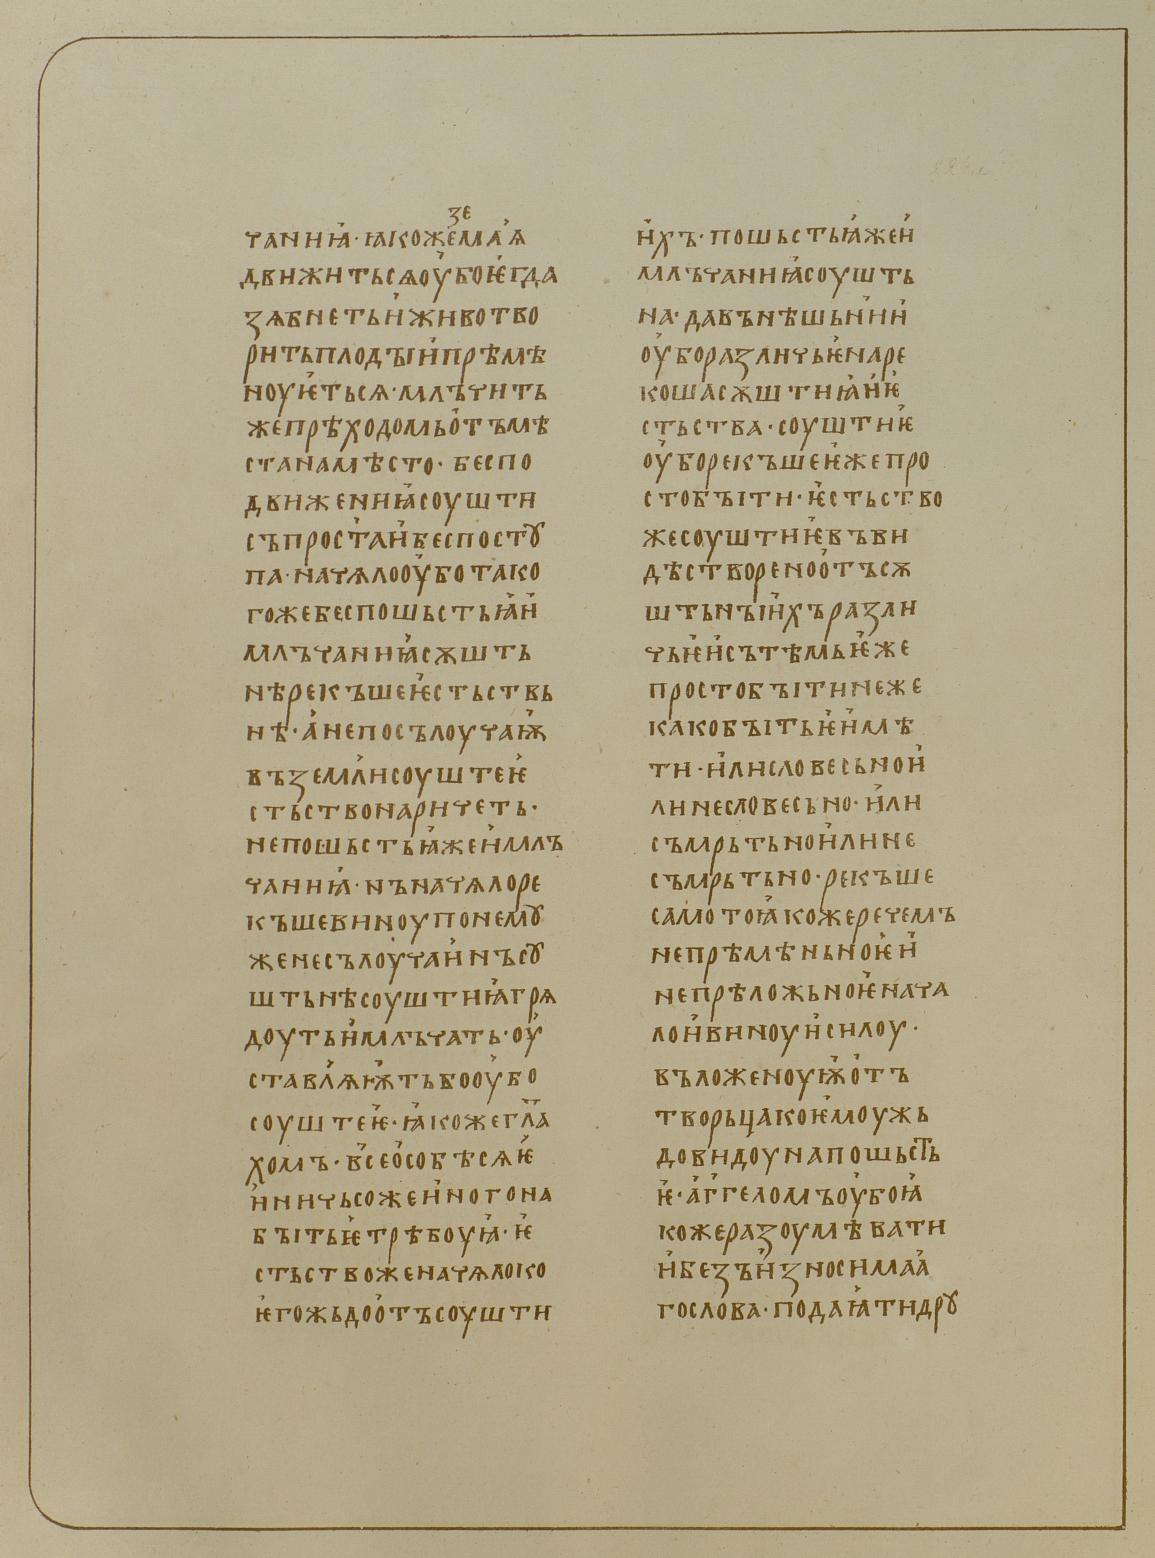 зе
чаниꙗ· ꙗкожемаꙗ
движитьсѧоубоѥгда
зѧбнетьиживотво
ритьплодꙑипрѣмѣ
ноуѥтьсѧ· мльчить
жепрѣходомьотъмѣ
станамѣсто· беспо
движениꙗсоушти
съпростаибеспостꙋ
па· начѧлооуботако
гожебеспошьстьꙗи
млъчаниꙗсѫшть
нѣрекъшеѥстьствь
нѣ· анепосълоучаѭ
въземлисоуштеѥ
стьствонаричеть·
непошьстьꙗжеимлъ
чаниꙗ· нъначѧлоре
къшевиноупонемꙋ
женесълоучаинъсꙋ
штьнѣсоуштиꙗгрѧ
доутьимльчать· оу
ставлꙗѭтьбооубо
соуштеѥ· ꙗкожегла
хомъ· всеособѣсѧѥ
иничьсожеиногона
бꙑтьѥтрѣбоуꙗ· ѥ
стьствоженачѧлоко
ѥгожьдоотъсоушти
ихъ· пошьстьꙗжеи
мльчаниꙗсоушть
на· давънѣшьнии
оуборазличьѥнаре
кошасѫштиꙗиѥ
стьства· соуштиѥ
оуборекъшеѥжепро
стобꙑти· ѥстьство
жесоуштиѥвъви
дѣствореноотъсѫ
штьнꙑихъразли
чьѥисътѣмьѥже
простобꙑтинеже
какобꙑтьѥимѣ
ти· илисловесьнои
линесловесьно· или
съмрьтьноилине
съмрьтьно· рекъше
самотоꙗкожеречемъ
непрѣмѣньноѥи
непрѣложьноѥнача
лоивиноуисилоу·
въложеноуѭотъ
творьцакоѥмоужь
довидоунапошьсть
ѥ· аггеломъоубоꙗ
кожеразоумѣвати
ибезъизносимаа
гослова· подаꙗтидрꙋ